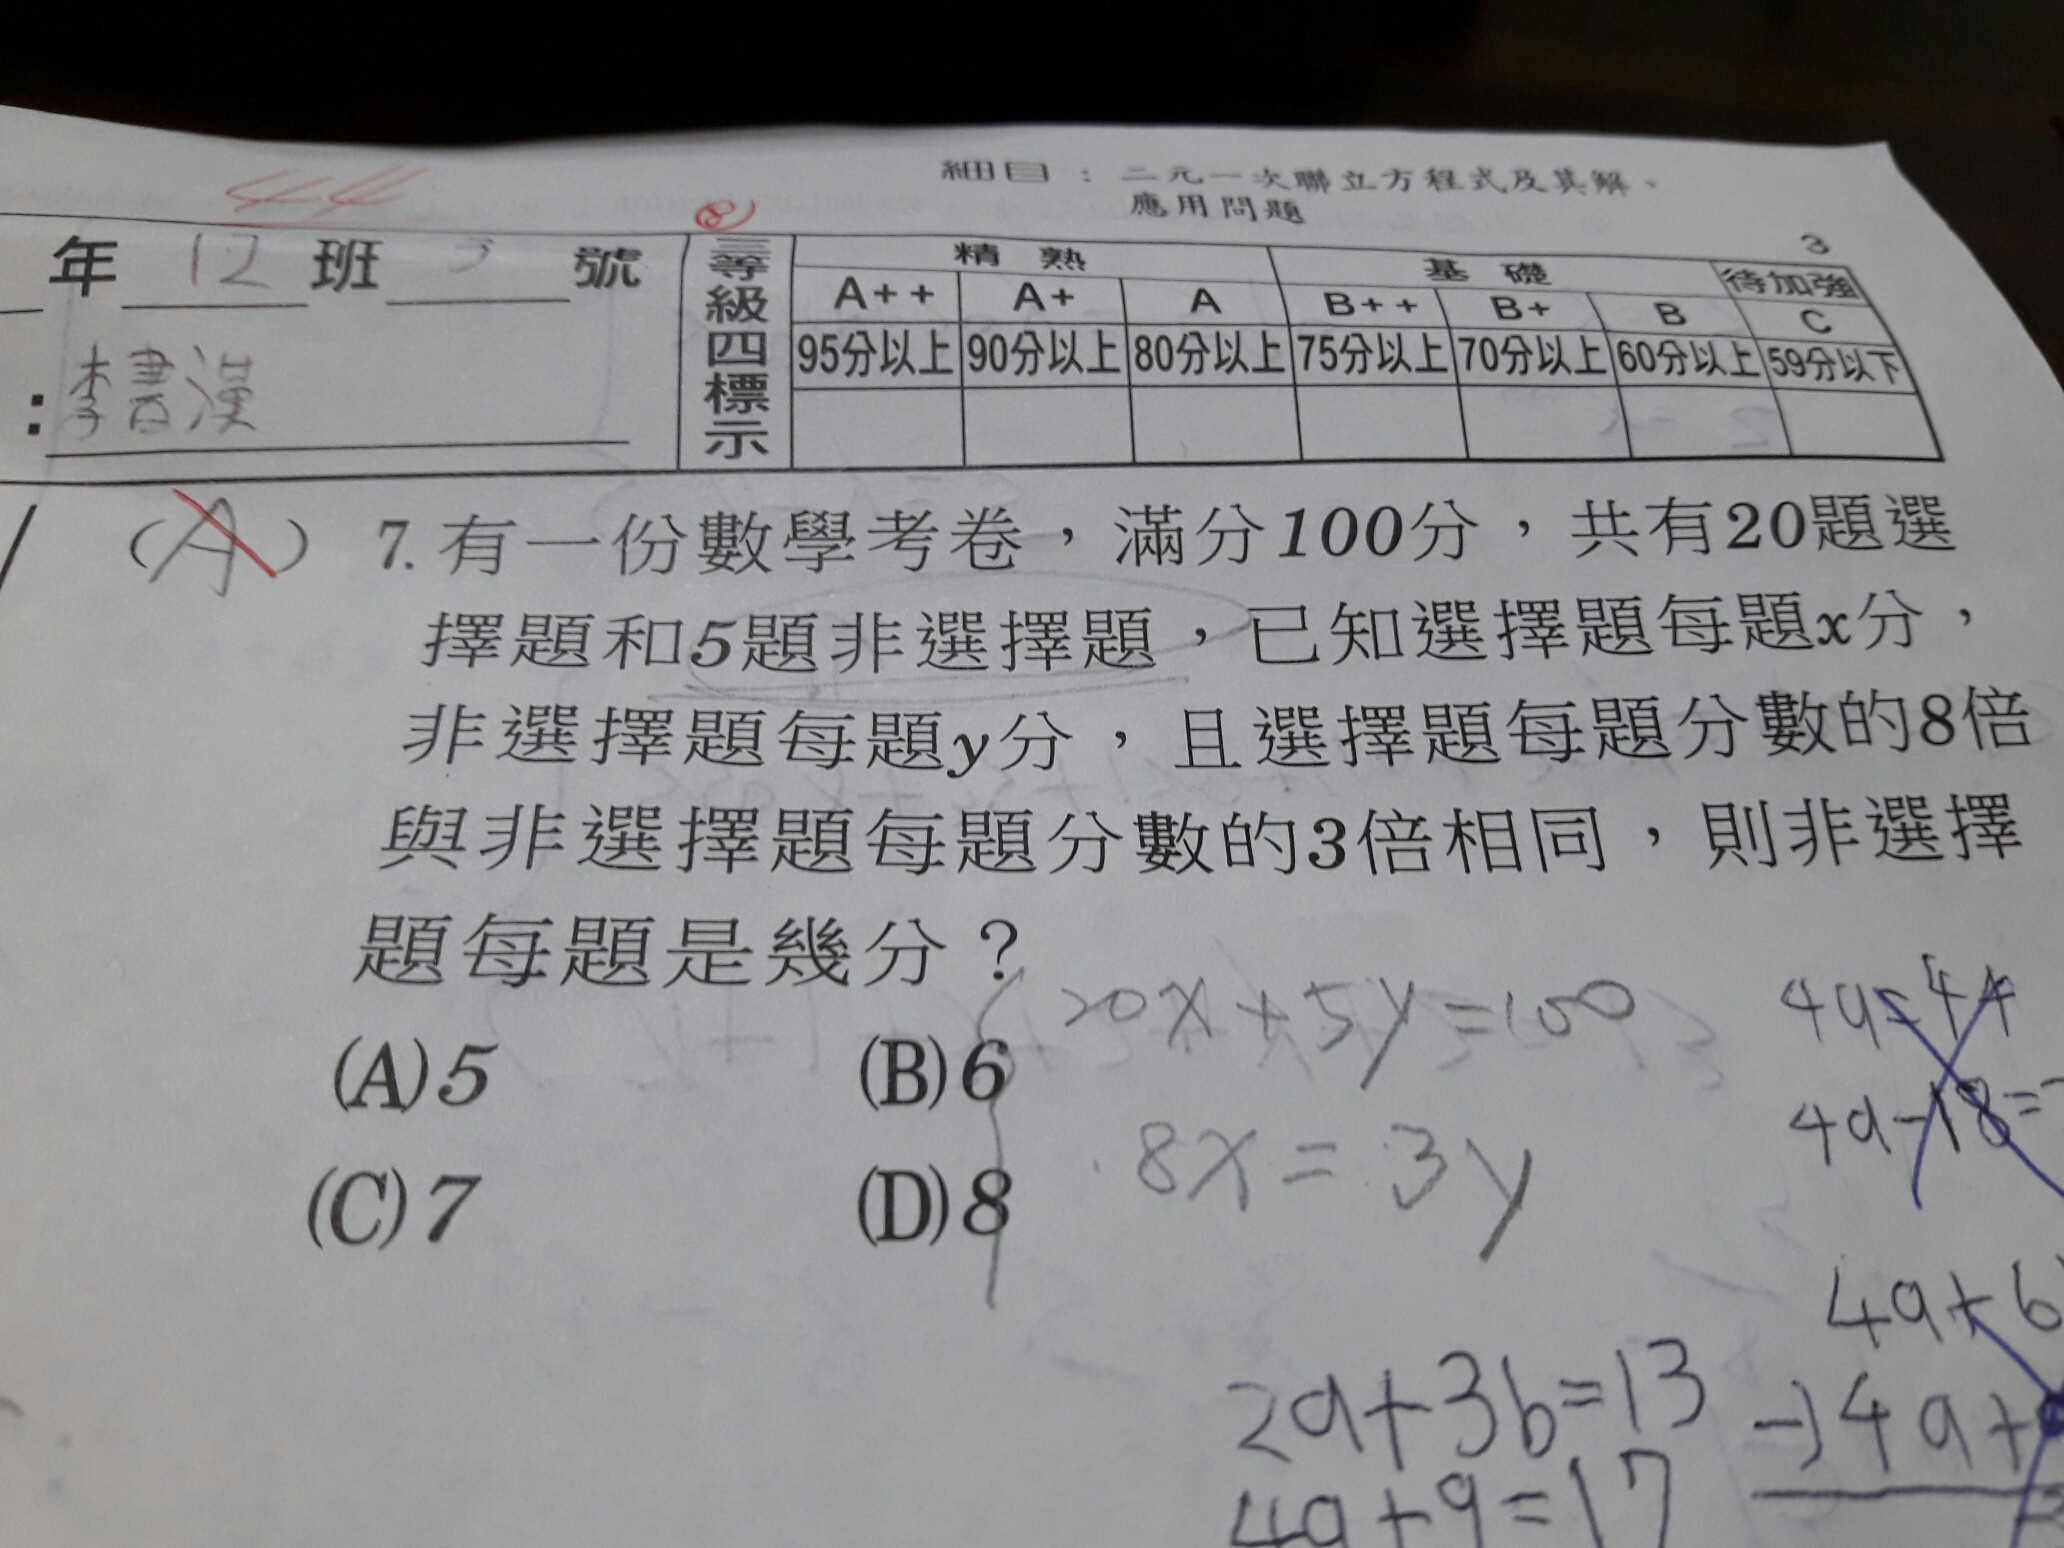 細目：二元一次聯立方程式及其解、
應用問題
44
3
年 12 班 3 號
：李書漢
三等級四標示
精熟 基礎 待加強
A++ A+ A B++ B+ B C
95分以上 90分以上 80分以上 75分以上 70分以上 60分以上 59分以下
(A) 7. 有一份數學考卷，滿分100分，共有20題選
擇題和5題非選擇題，已知選擇題每題x分，
非選擇題每題y分，且選擇題每題分數的8倍
與非選擇題每題分數的3倍相同，則非選擇
題每題是幾分？
(A)5 (B)6
(C)7 (D)8
20x+5y=100
8x=3y
4a=44
4a-18=
4a+6
2a+3b=13
-)4a+
4a+9=17